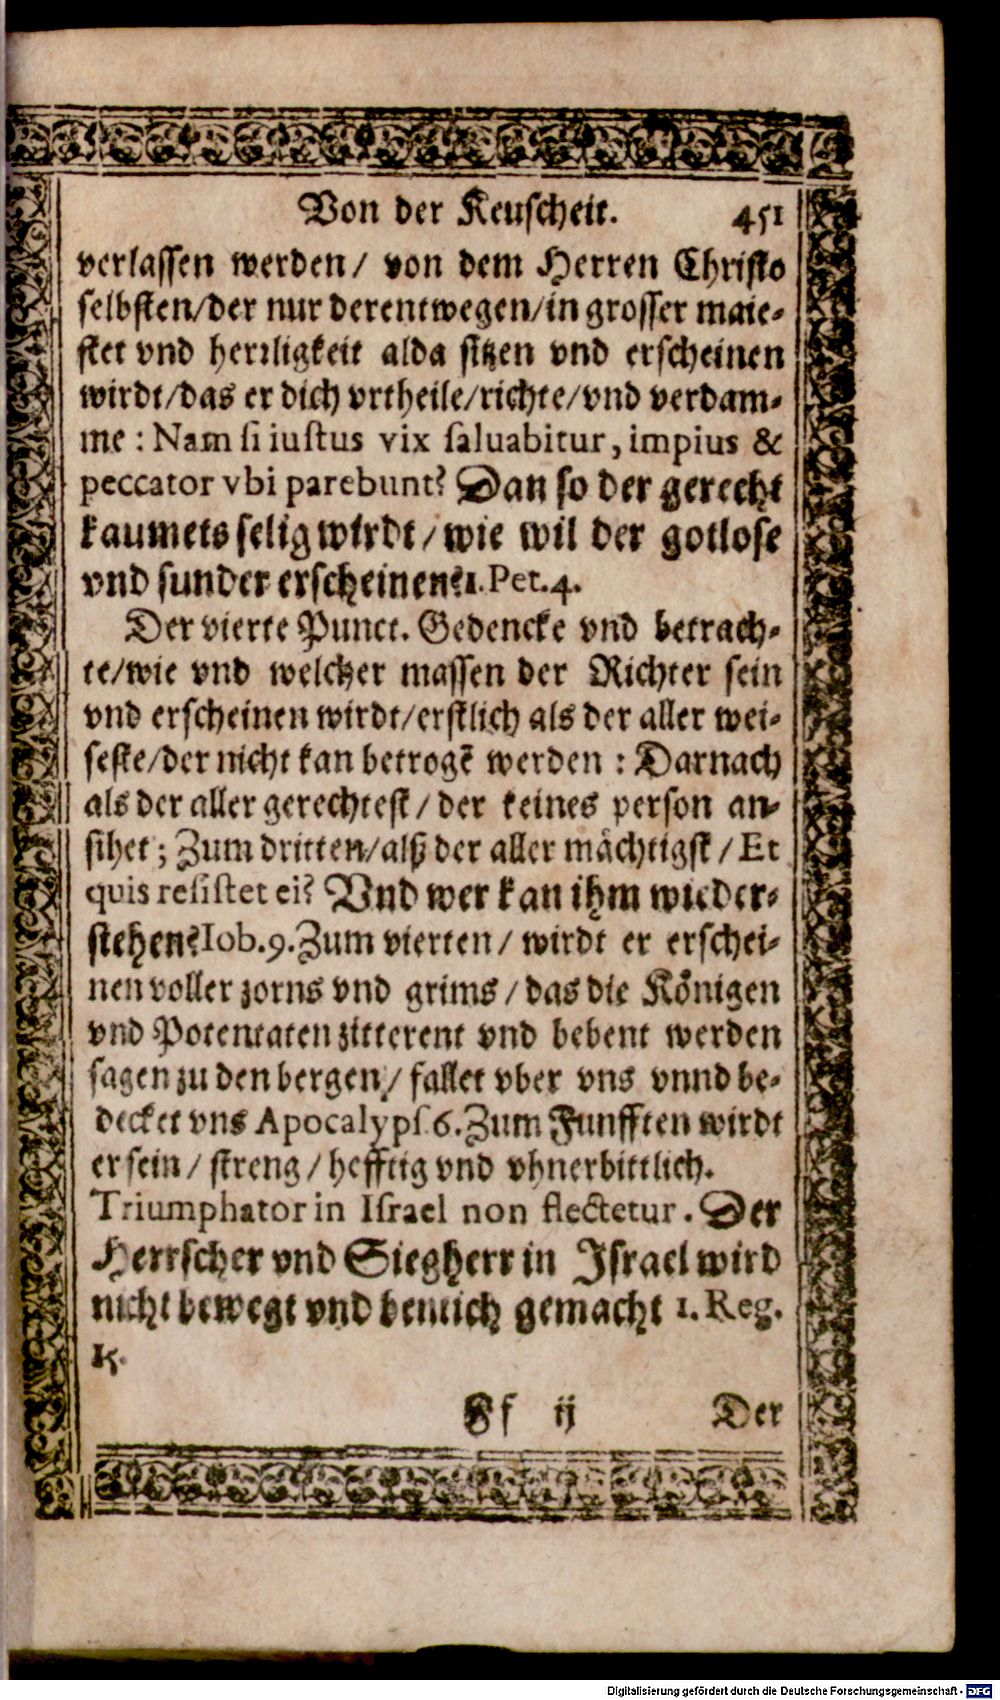 Von der Keuscheit. 451
verlassen werden/ von dem Herren Christo
selbsten/der nur derentwegen/in grosser maie-
stet vnd herrligkeit alda sitzen vnd erscheinen
wirdt/das er dich vrtheile/richte/vnd verdam-
me : Nam si iustus vix saluabitur, impius &
peccator vbi parebunt? Dan so der gerecht
kaumets selig wirdt/wie wil der gotlose
vnd sunder erscheinen?1.Pet.4.
Der vierte Punct. Gedencke vnd betrach-
te/wie vnd welcher massen der Richter sein
vnd erscheinen wirdt/erstlich als der aller wei-
seste/der nicht kan betrogē werden : Darnach
als der aller gerechtest/ der keines person an-
sihet; Zum dritten/alß der aller mächtigst/Et
quis resistet ei? Vnd wer kan ihm wieder-
stehen?Iob.9.Zum vierten/ wirdt er erschei-
nen voller zorns vnd grims/das die Königen
vnd Potentaten zitterent vnd bebent werden
sagen zu den bergen/ fallet vber vns vnnd be-
decket vns Apocalyps.6.Zum Funfften wirdt
er sein/ streng/hefftig vnd vhnerbittlich.
Triumphator in Israel non flectetur. Der
Herrscher vnd Siegherr in Israel wird
nicht bewegt vnd gemacht 1. Reg.
15.
Ff ij Der
Digitalisierung gefördert durch die Deutsche Forschungsgemeinschaft - DFG